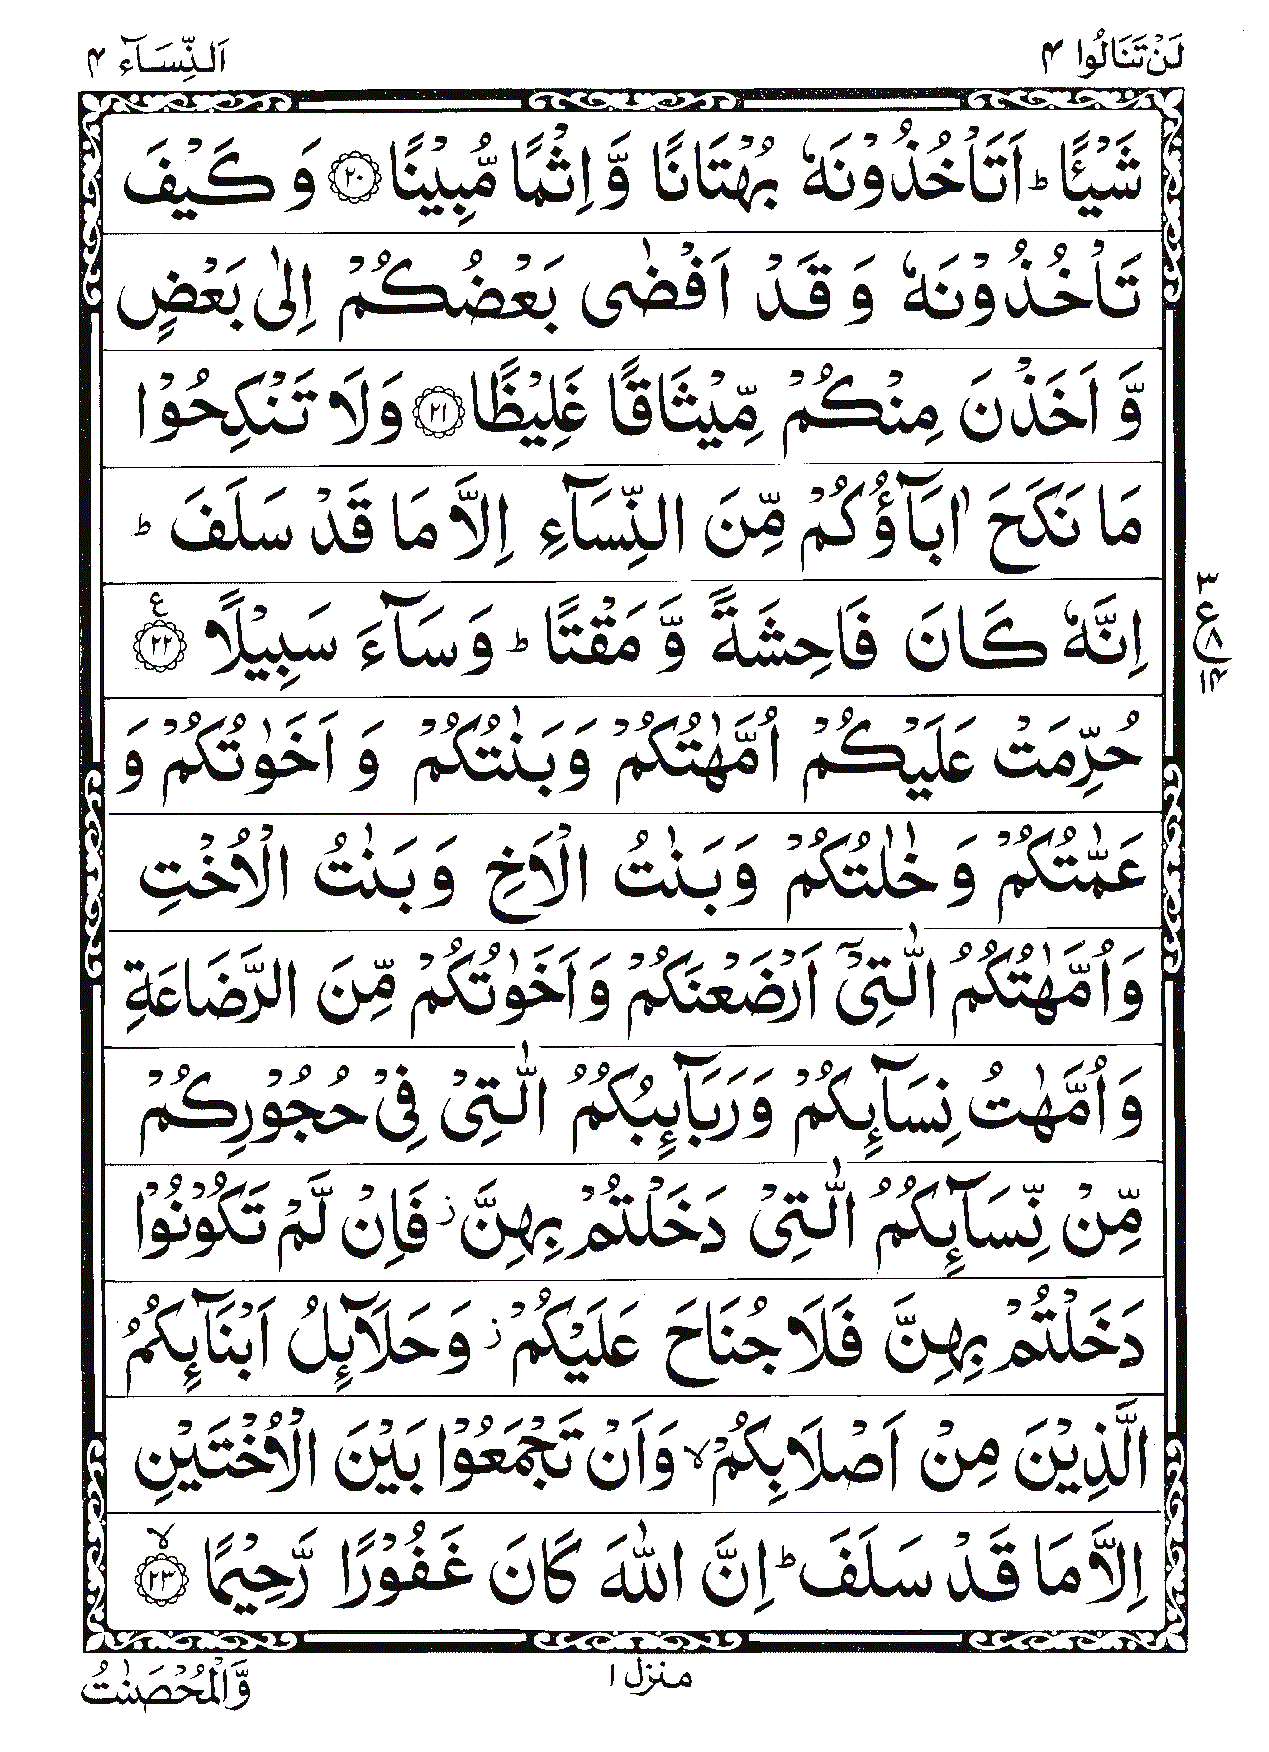 لَنْ تَنَالُوا ۴
اَلنِّسَآء ۴
شَیْـًٔا ؕ اَتَاْخُذُوْنَهٗ بُهْتَانًا وَّ اِثْمًا مُّبِیْنًا ﴿۲۰﴾ وَ كَیْفَ
تَاْخُذُوْنَهٗ وَ قَدْ اَفْضٰی بَعْضُكُمْ اِلٰی بَعْضٍ
وَّ اَخَذْنَ مِنْكُمْ مِّیْثَاقًا غَلِیْظًا ﴿۲۱﴾ وَلَا تَنْكِحُوْا
مَا نَكَحَ اٰبَآؤُكُمْ مِّنَ النِّسَآءِ اِلَّا مَا قَدْ سَلَفَ ؕ
اِنَّهٗ كَانَ فَاحِشَةً وَّ مَقْتًا ؕ وَ سَآءَ سَبِیْلًا ﴿۲۲﴾ ع
۳
ع
۸
۱۴
حُرِّمَتْ عَلَیْكُمْ اُمَّهٰتُكُمْ وَ بَنٰتُكُمْ وَ اَخَوٰتُكُمْ وَ
عَمّٰتُكُمْ وَ خٰلٰتُكُمْ وَ بَنٰتُ الْاَخِ وَ بَنٰتُ الْاُخْتِ
وَ اُمَّهٰتُكُمُ الّٰتِیْۤ اَرْضَعْنَكُمْ وَ اَخَوٰتُكُمْ مِّنَ الرَّضَاعَةِ
وَ اُمَّهٰتُ نِسَآىِٕكُمْ وَ رَبَآىِٕبُكُمُ الّٰتِیْ فِیْ حُجُوْرِكُمْ
مِّنْ نِّسَآىِٕكُمُ الّٰتِیْ دَخَلْتُمْ بِهِنَّ ؗ فَاِنْ لَّمْ تَكُوْنُوْا
دَخَلْتُمْ بِهِنَّ فَلَا جُنَاحَ عَلَیْكُمْ ؗ وَ حَلَآىِٕلُ اَبْنَآىِٕكُمُ
الَّذِیْنَ مِنْ اَصْلَابِكُمْ ۙ وَ اَنْ تَجْمَعُوْا بَیْنَ الْاُخْتَیْنِ
اِلَّا مَا قَدْ سَلَفَ ؕ اِنَّ اللّٰهَ كَانَ غَفُوْرًا رَّحِیْمًا ﴿۲۳﴾ ۙ
منزل ۱
وَّالْمُحْصَنٰتُ